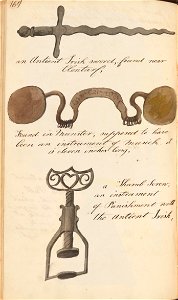 169
an Antient Irish sword, found near
Clontarf,
Found in Munster, supposed to have
been an instrument of Musick, &
a eleven inches long,
a Thumb Screw,
an instrument
of Punishment with
the Antient Irish,